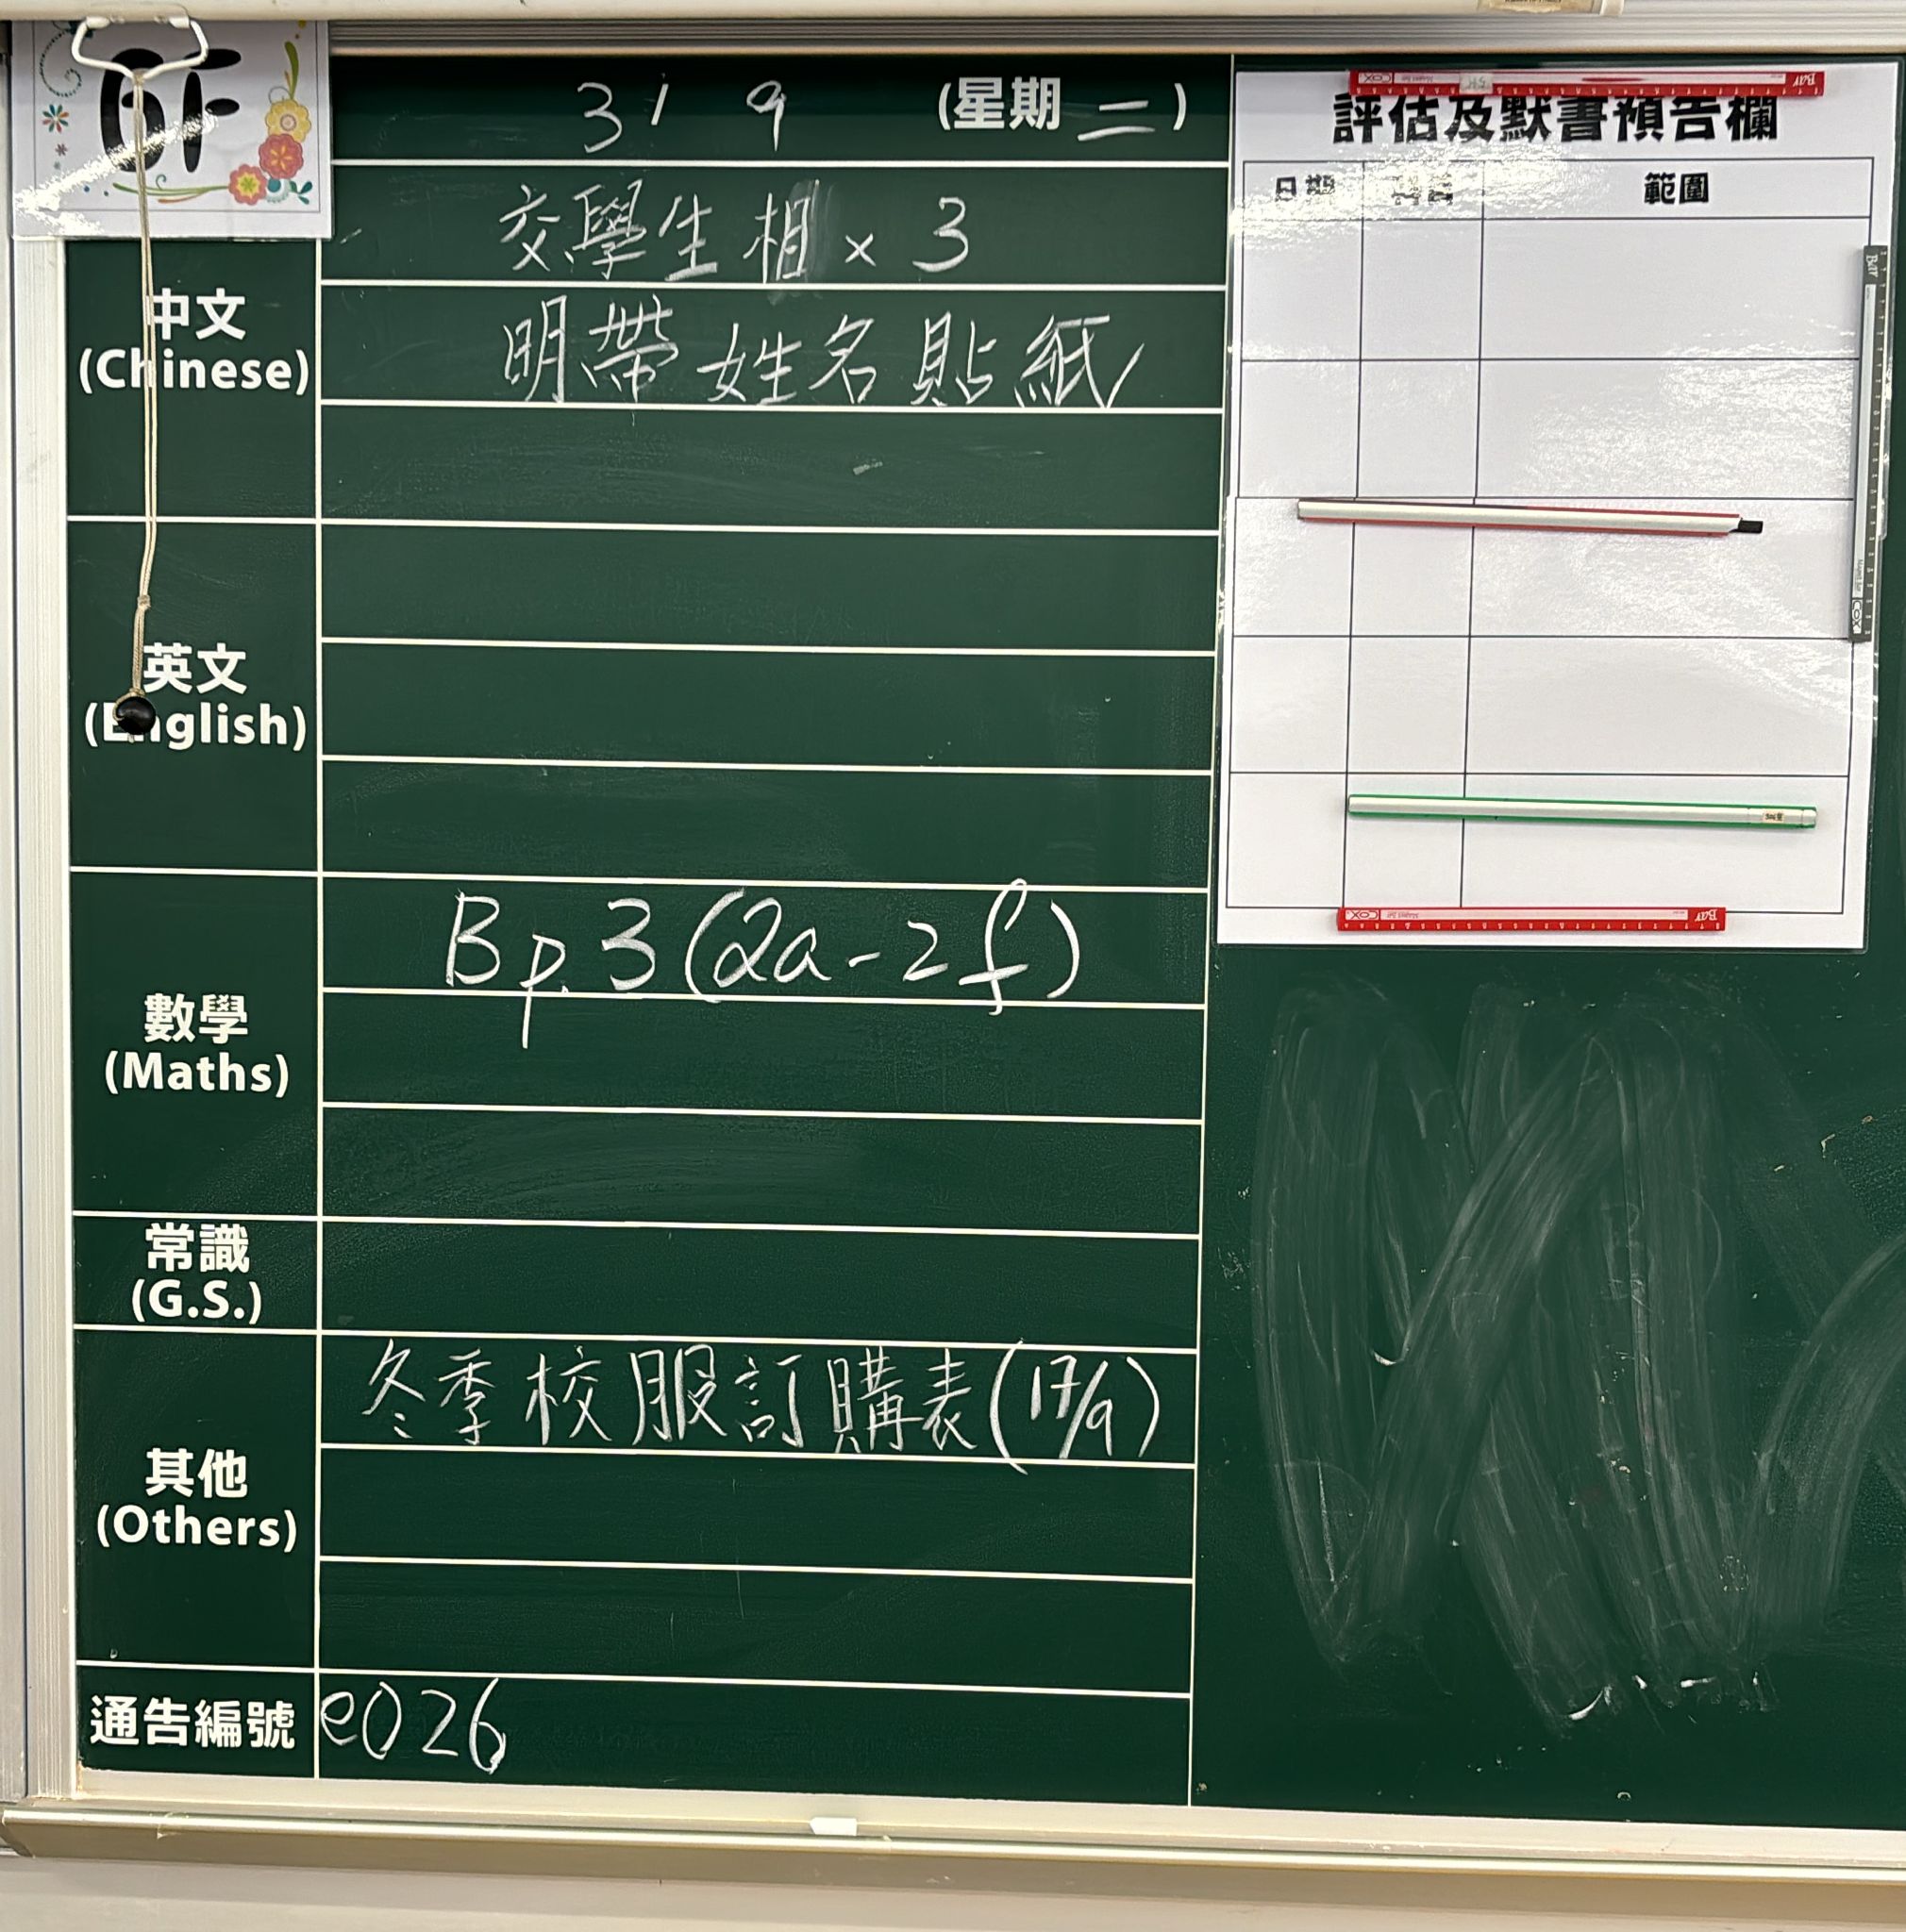 3 / 9 (星期二)
交學生相 x 3
中文
(Chinese)
明帶姓名貼紙
英文
(English)
數學
(Maths)
B p. 3 (2a - 2f)
常識
(G.S.)
其他
(Others)
冬季校服訂購表 (17/9)
通告編號
e026
評估及默書預告欄
日期
範圍